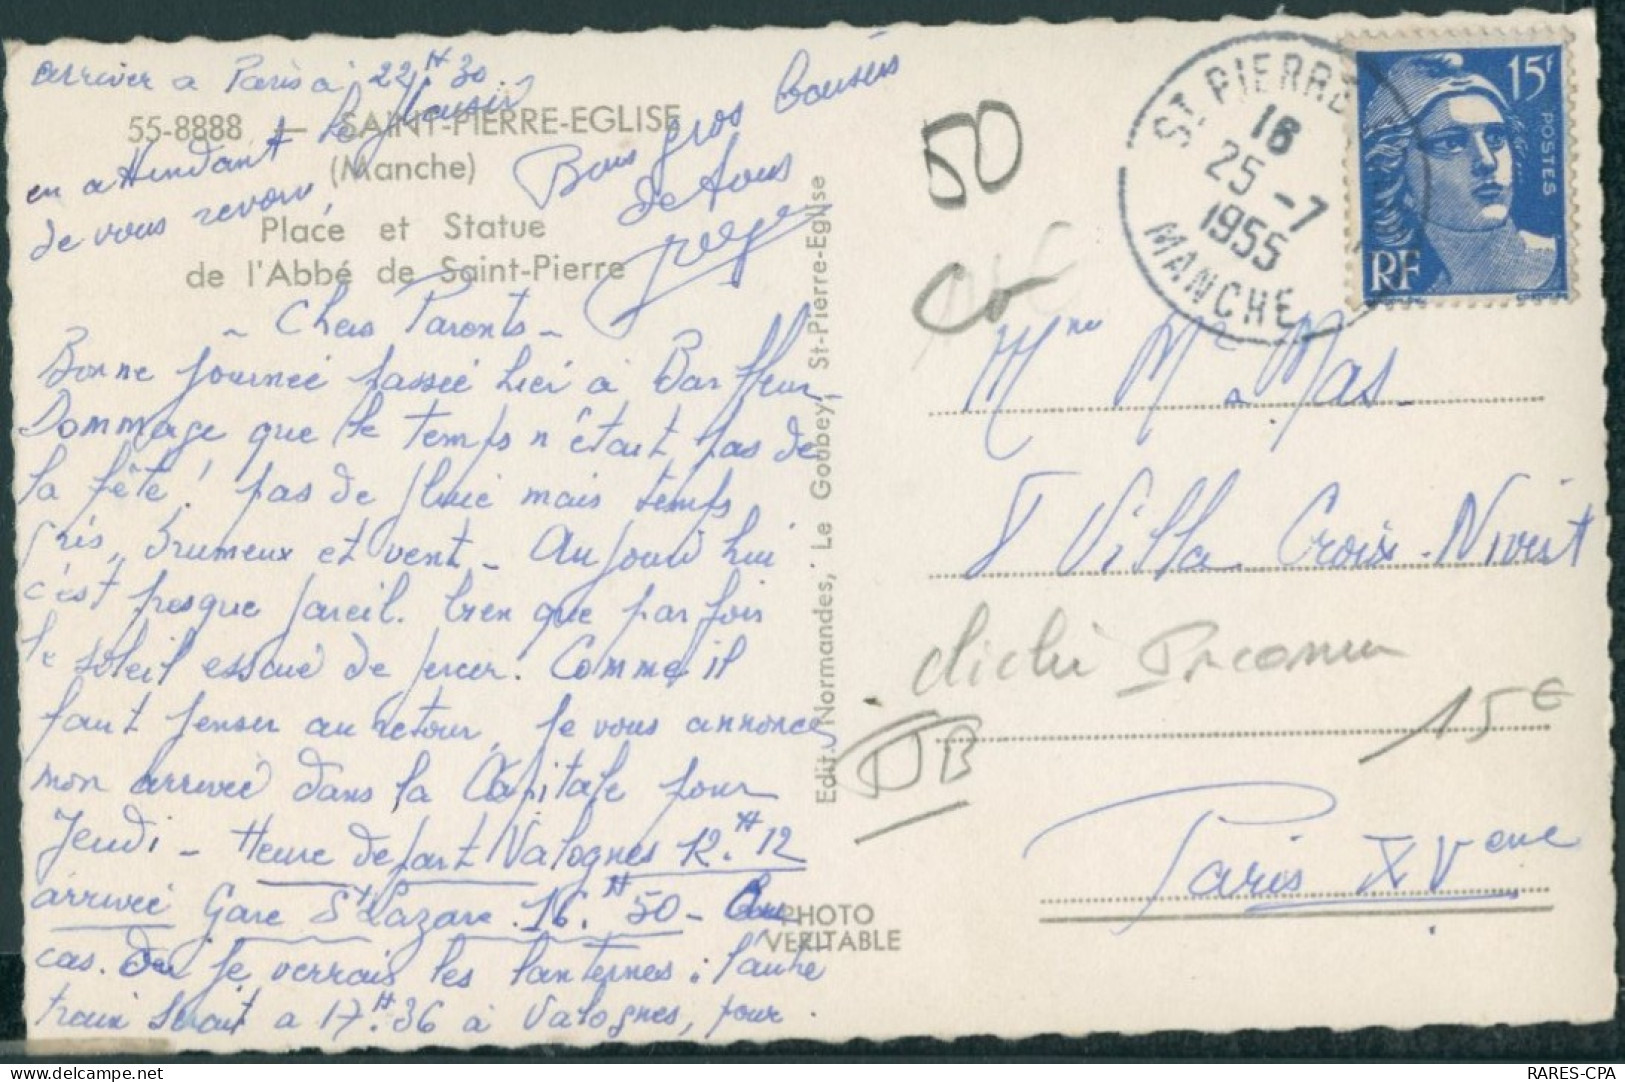 arriver a Paris a 22H30.
en attendant le plaisir
de vous revoir,
Bons gros baisers
de tous
55-8888 — SAINT-PIERRE-EGLISE
(Manche)
Place et Statue
de l'Abbé de Saint-Pierre
- Chers Parents -
Bonne journée passée hier à Barfleur_
Dommage que le temps n'était pas de
la fête! pas de pluie mais temps
gris, brumeux et vent - Aujourd'hui
c'est presque pareil. bien que parfois
le soleil essaie de percer. Comme il
faut penser au retour, je vous annonce
mon arrivée dans la Capitale pour
Jeudi - Heure depart Valognes 12.H12
arrivée Gare St Lazare. 16.H50 - Au
cas. Ou je verrais les lanternes: l'autre
train serait a 17.H36 à Valognes, pour.
Edit. Normandes, Le Goubey, St-Pierre-Eglise
PHOTO
VERITABLE
50
Co
ST PIERRE
16
25-7
1955
MANCHE
15F
POSTES
RF
Mme Mas_
8 Villa Croix-Nivert
cliché Inconnu
15€
DB
Paris XVeme
RARES-CPA